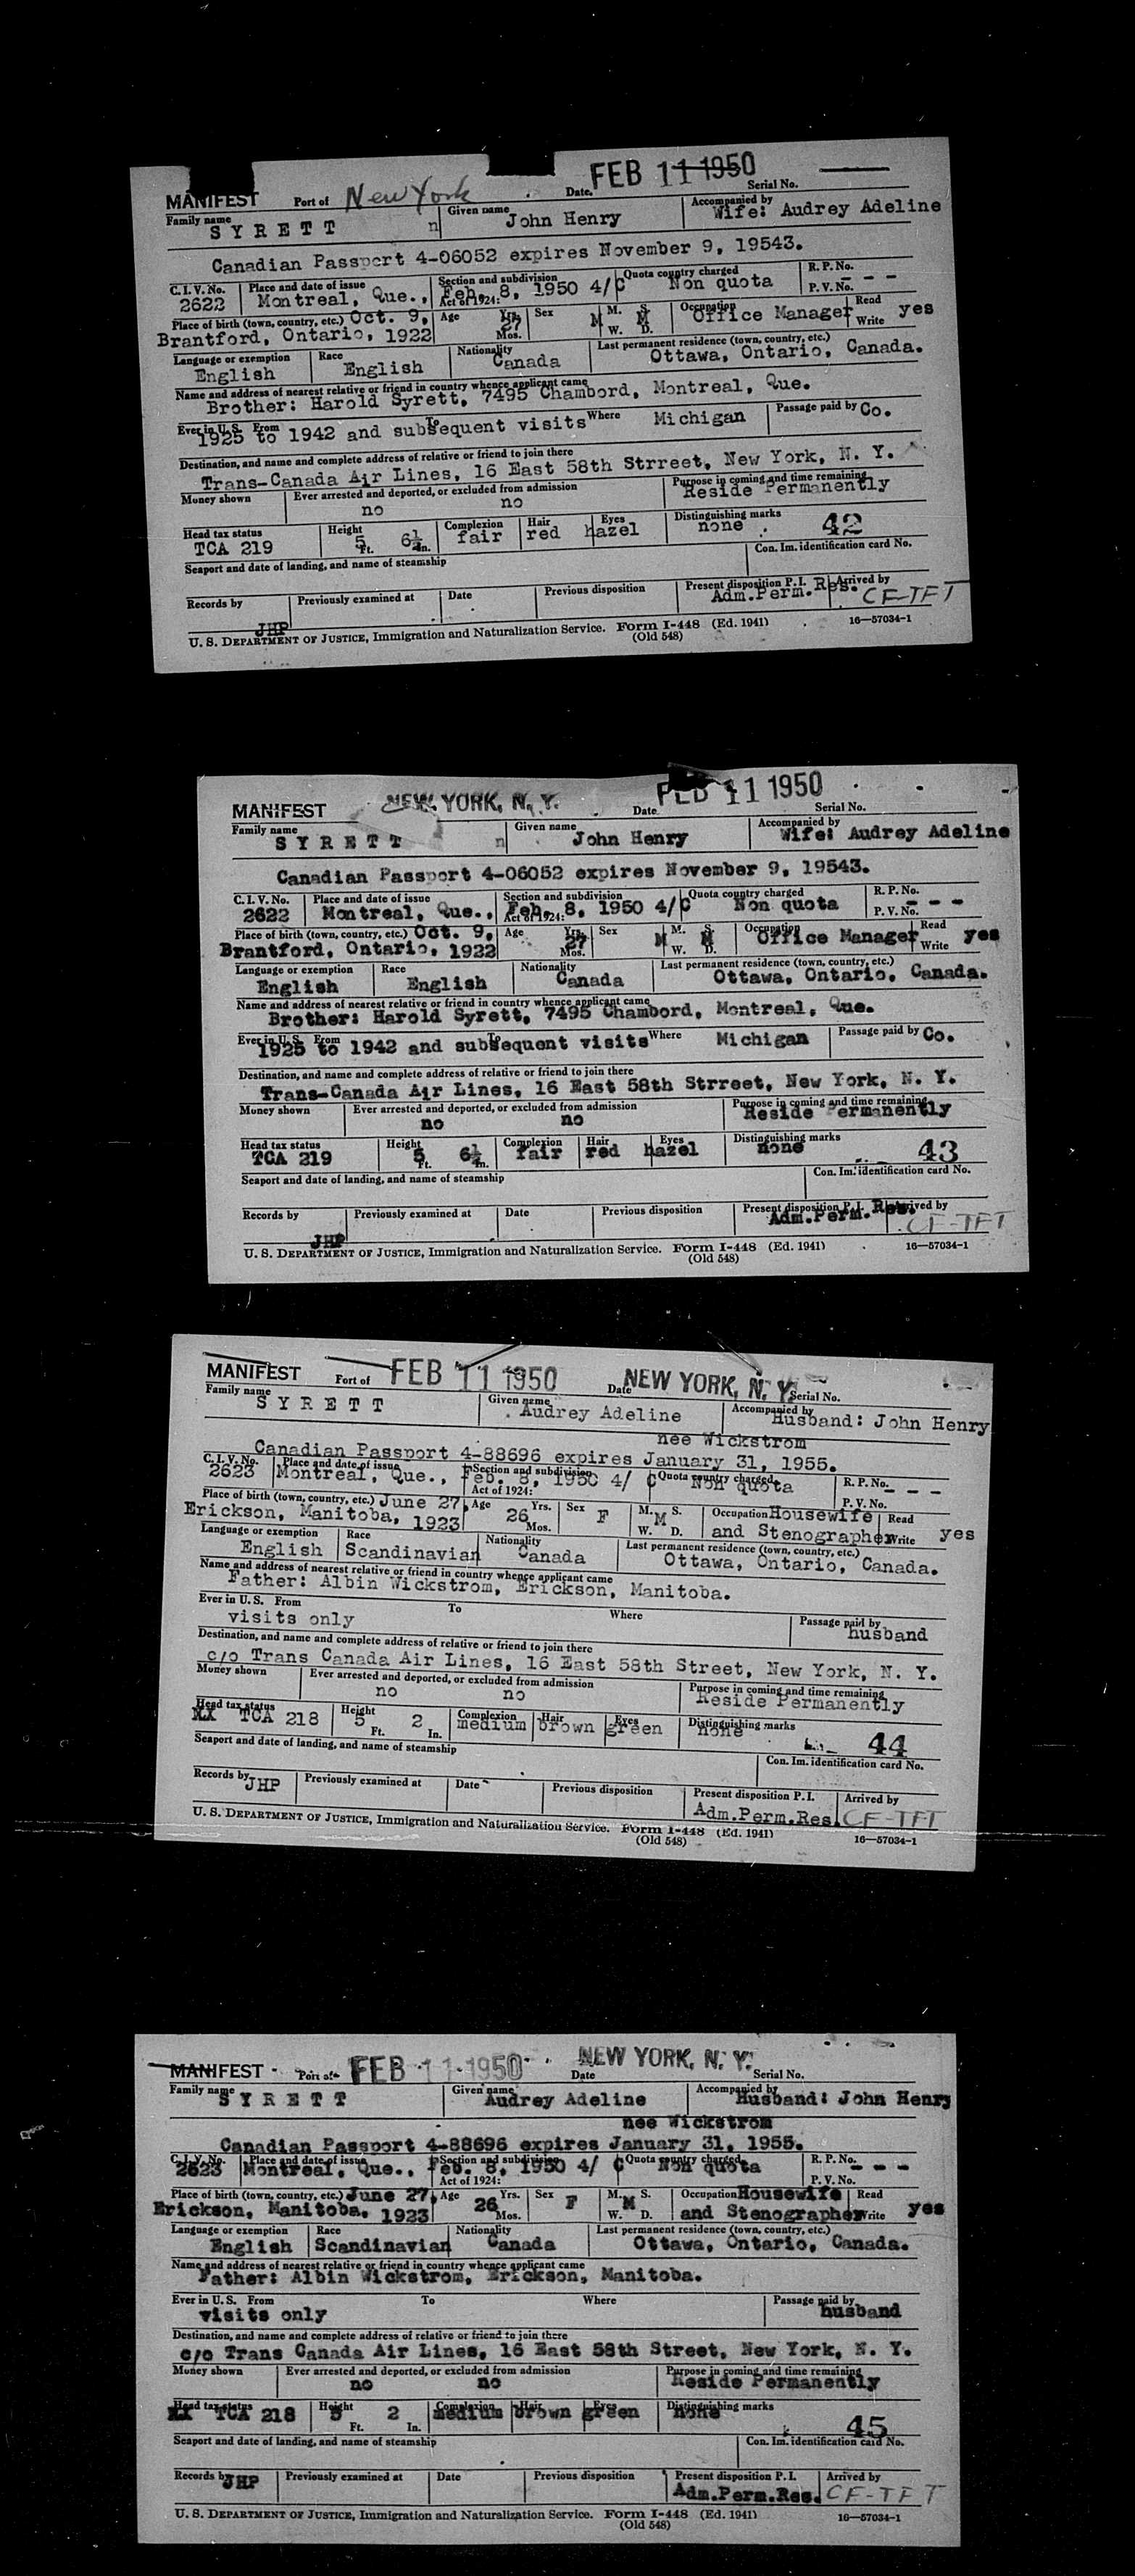 FEB 11 1950
MANIFEST Port of New York Date Serial No.
Family name SYRETT n Given name John Henry Accompanied by Wife: Audrey Adeline
Canadian Passport 4-06052 expires November 9, 19543.
C. I. V. No. 2622 Place and date of issue Montreal, Que., Feb. 8, 1950 Section and subdivision Act of 1924: 4/C Quota country charged Non quota R. P. No. P. V. No. - - -
Place of birth (town, country, etc.) Oct. 9, Brantford, Ontario, 1922 Age Yrs. 27 Mos. Sex M M. S. W. D. M Occupation Office Manager Read Write yes
Language or exemption English Race English Nationality Canada Last permanent residence (town, country, etc.) Ottawa, Ontario, Canada.
Name and address of nearest relative or friend in country whence applicant came
Brother: Harold Syrett, 7495 Chambord, Montreal, Que.
Ever in U. S. From To Where Michigan Passage paid by Co.
1925 to 1942 and subsequent visits
Destination, and name and complete address of relative or friend to join there
Trans-Canada Air Lines, 16 East 58th Strreet, New York, N. Y.
Money shown Ever arrested and deported, or excluded from admission no no Purpose in coming and time remaining Reside Permanently
Head tax status TCA 219 Height 5 Ft. 6½ In. Complexion fair Hair red Eyes hazel Distinguishing marks none 42
Seaport and date of landing, and name of steamship Con. Im. identification card No.
Records by JHP Previously examined at Date Previous disposition Present disposition P. I. Adm.Perm.Res. Arrived by CF-TFT
U. S. DEPARTMENT OF JUSTICE, Immigration and Naturalization Service. Form I-448 (Ed. 1941) 16—57034-1
(Old 548)
MANIFEST NEW YORK, N. Y. Date FEB 11 1950 Serial No.
Family name SYRETT n Given name John Henry Accompanied by Wife: Audrey Adeline
Canadian Passport 4-06052 expires November 9, 19543.
C. I. V. No. 2622 Place and date of issue Montreal, Que., Feb. 8, 1950 Section and subdivision Act of 1924: 4/C Quota country charged Non quota R. P. No. P. V. No. - - -
Place of birth (town, country, etc.) Oct. 9, Brantford, Ontario, 1922 Age Yrs. 27 Mos. Sex M M. S. W. D. M Occupation Office Manager Read Write yes
Language or exemption English Race English Nationality Canada Last permanent residence (town, country, etc.) Ottawa, Ontario, Canada.
Name and address of nearest relative or friend in country whence applicant came
Brother: Harold Syrett, 7495 Chambord, Montreal, Que.
Ever in U. S. From To Where Michigan Passage paid by Co.
1925 to 1942 and subsequent visits
Destination, and name and complete address of relative or friend to join there
Trans-Canada Air Lines, 16 East 58th Strreet, New York, N. Y.
Money shown Ever arrested and deported, or excluded from admission no no Purpose in coming and time remaining Reside Permanently
Head tax status TCA 219 Height 5 Ft. 6½ In. Complexion fair Hair red Eyes hazel Distinguishing marks none 43
Seaport and date of landing, and name of steamship Con. Im. identification card No.
Records by JHP Previously examined at Date Previous disposition Present disposition P. I. Adm.Perm.Res. Arrived by CF-TFT
U. S. DEPARTMENT OF JUSTICE, Immigration and Naturalization Service. Form I-448 (Ed. 1941) 16—57034-1
(Old 548)
MANIFEST Port of FEB 11 1950 Date NEW YORK, N. Y. Serial No.
Family name SYRETT Given name Audrey Adeline Accompanied by Husband: John Henry
nee Wickstrom
Canadian Passport 4-88696 expires January 31, 1955.
C. I. V. No. 2623 Place and date of issue Montreal, Que., Feb. 8, 1950 Section and subdivision Act of 1924: 4/ C Quota country charged Non quota R. P. No. P. V. No. - - -
Place of birth (town, country, etc.) June 27, Erickson, Manitoba, 1923 Age 26 Yrs. Mos. Sex F M. S. W. D. M Occupation Housewife and Stenographer Read Write yes
Language or exemption English Race Scandinavian Nationality Canada Last permanent residence (town, country, etc.) Ottawa, Ontario, Canada.
Name and address of nearest relative or friend in country whence applicant came
Father: Albin Wickstrom, Erickson, Manitoba.
Ever in U. S. From To Where Passage paid by husband
visits only
Destination, and name and complete address of relative or friend to join there
c/o Trans Canada Air Lines, 16 East 58th Street, New York, N. Y.
Money shown Ever arrested and deported, or excluded from admission no no Purpose in coming and time remaining Reside Permanently
Head tax status XX TCA 218 Height 5 Ft. 2 In. Complexion medium Hair brown Eyes green Distinguishing marks none 44
Seaport and date of landing, and name of steamship Con. Im. identification card No.
Records by JHP Previously examined at Date Previous disposition Present disposition P. I. Adm.Perm.Res. Arrived by CF-TFT
U. S. DEPARTMENT OF JUSTICE, Immigration and Naturalization Service. Form I-448 (Ed. 1941) 16—57034-1
(Old 548)
MANIFEST Port of FEB 11 1950 Date NEW YORK, N. Y. Serial No.
Family name SYRETT Given name Audrey Adeline Accompanied by Husband: John Henry
nee Wickstrom
Canadian Passport 4-88696 expires January 31, 1955.
C. I. V. No. 2623 Place and date of issue Montreal, Que., Feb. 8, 1950 Section and subdivision Act of 1924: 4/ C Quota country charged Non quota R. P. No. P. V. No. - - -
Place of birth (town, country, etc.) June 27, Erickson, Manitoba, 1923 Age 26 Yrs. Mos. Sex F M. S. W. D. M Occupation Housewife and Stenographer Read Write yes
Language or exemption English Race Scandinavian Nationality Canada Last permanent residence (town, country, etc.) Ottawa, Ontario, Canada.
Name and address of nearest relative or friend in country whence applicant came
Father: Albin Wickstrom, Erickson, Manitoba.
Ever in U. S. From To Where Passage paid by husband
visits only
Destination, and name and complete address of relative or friend to join there
c/o Trans Canada Air Lines, 16 East 58th Street, New York, N. Y.
Money shown Ever arrested and deported, or excluded from admission no no Purpose in coming and time remaining Reside Permanently
Head tax status XX TCA 218 Height 5 Ft. 2 In. Complexion medium Hair brown Eyes green Distinguishing marks none 45
Seaport and date of landing, and name of steamship Con. Im. identification card No.
Records by JHP Previously examined at Date Previous disposition Present disposition P. I. Adm.Perm.Res. Arrived by CF-TFT
U. S. DEPARTMENT OF JUSTICE, Immigration and Naturalization Service. Form I-448 (Ed. 1941) 16—57034-1
(Old 548)